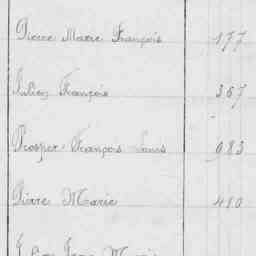 Pierre Marie François 177
Julien François 367
Prosper François Louis 983
Pierre Marie 410
Marie